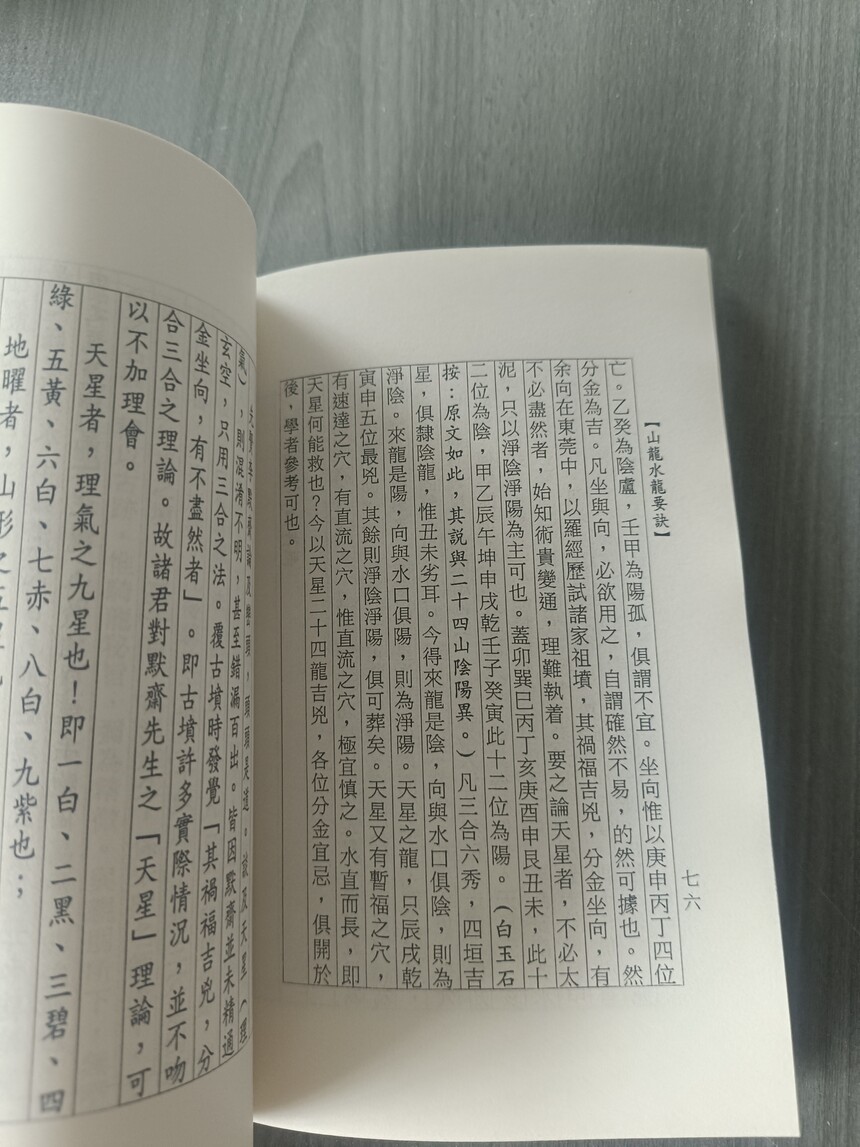 【山龍水龍要訣】
七六
亡。乙癸為陰虛,壬甲為陽孤,俱謂不宜。坐向惟以庚申丙丁四位
分金為吉。凡坐與向,必欲用之,自謂確然不易,的然可據也。然
余向在東莞中,以羅經歷試諸家祖墳,其禍福吉兇,分金坐向,有
不必盡然者,始知術貴變通,理難執着。要之論天星者,不必太
泥,只以淨陰淨陽為主可也。蓋卯巽巳丙丁亥庚酉申艮丑未,此十
二位為陰,甲乙辰午坤申戌乾壬子癸寅此十二位為陽。(白玉石
按:原文如此,其説與二十四山陰陽異。)凡三合六秀,四垣吉
星,俱隸陰龍,惟丑未劣耳。今得來龍是陰,向與水口俱陰,則為
淨陰。來龍是陽,向與水口俱陽,則為淨陽。天星之龍,只辰戌乾
寅申五位最兇。其餘則淨陰淨陽,俱可葬矣。天星又有暫福之穴,
有速達之穴,有直流之穴,惟直流之穴,極宜慎之。水直而長,即
天星何能救也?今以天星二十四龍吉兇,各位分金宜忌,俱開於
後,學者參考可也。
氣),則混淆不明,甚至錯漏百出。皆因默齋並未精通
玄空,只用三合之法。覆古墳時發覺「其禍福吉兇,分
金坐向,有不盡然者」。即古墳許多實際情況,並不吻
合三合之理論。故諸君對默齋先生之「天星」理論,可
以不加理會。
天星者,理氣之九星也!即一白、二黑、三碧、四
綠、五黃、六白、七赤、八白、九紫也;
地曜者,山形之五